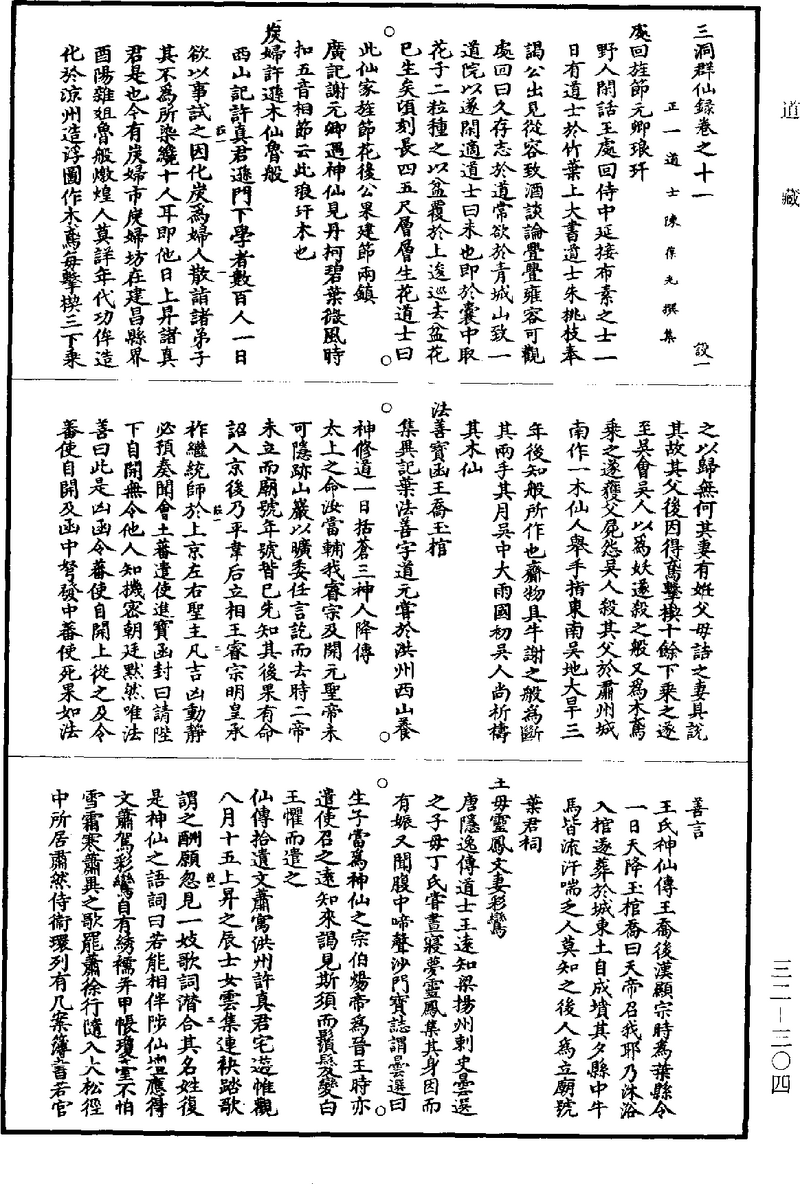 道藏
三洞群仙録卷之十一 設一
正一道士陳葆光撰集
處回旌節元卿琅玕
野人閑話王處回侍中延接布素之士一
日有道士於竹葉上大書道士朱桃枝奉
謁公出見從容致酒談論亹亹雍容可觀
處回曰久存志於道常欲於青城山致一
道院以遂閑適道士曰未也即於囊中取
花子二粒種之以盆覆於上逡巡去盆花
已生矣頃刻長四五尺層層生花道士曰
此仙家旌節花後公果建節兩鎮
廣記謝元卿遇神仙見丹柯碧葉微風時
扣五音相節云此琅玕木也
炭婦許遜木仙魯般
西山記許真君遜門下學者數百人一日
欲以事試之因化炭爲婦人散詣諸弟子
其不爲所染纔十人耳即他日上昇諸真
君是也今有炭婦市炭婦坊在建昌縣界
酉陽雜俎魯般燉煌人莫詳年代功侔造
化於涼州造浮圖作木鳶每擊楔三下乘
之以歸無何其妻有姙父母詰之妻具說
其故其父後因得鳶擊楔十餘下乘之遂
至吳會吳人以爲妖遂殺之般又爲木鳶
乘之遂獲父屍怨吳人殺其父於肅州城
南作一木仙人舉手指東南吳地大旱三
年後知般所作也齎物具牛謝之般爲斷
其兩手其月吳中大雨國初吳人尚祈禱
其木仙
法善寶函王喬玉棺
集異記葉法善字道元甞於洪州西山養
神修道一日括蒼三神人降傳
太上之命汝當輔我睿宗及開元聖帝未
可隱跡山巖以曠委任言訖而去時二帝
未立而廟號年號皆已先知其後果有命
詔入京後乃平韋后立相王睿宗明皇承
祚繼統師於上京左右聖主凡吉凶動靜
必預奏聞會土蕃遣使進寶函封曰請陛
下自開無令他人知機密朝廷默然唯法
善曰此是凶函令蕃使自開上從之及令
蕃使自開及函中弩發中蕃使死果如法
善言
王氏神仙傳王喬後漢顯宗時爲葉縣令
一日天降玉棺喬曰天帝召我耶乃沐浴
入棺遂葬於城東土自成墳其夕縣中牛
馬皆流汗喘乏人莫知之後人爲立廟號
葉君祠
王母靈鳳文妻彩鸞
唐隱逸傳道士王遠知梁揚州刺史曇選
之子母丁氏甞晝寢夢靈鳳集其身因而
有娠又聞腹中啼聲沙門寶誌謂曇選曰
生子當爲神仙之宗伯煬帝爲晉王時亦
遣使召之遠知來謁見斯須而鬚髮變白
王懼而遣之
仙傳拾遺文蕭寓洪州許真君宅遊帷觀
八月十五上昇之辰士女雲集連袂踏歌
謂之酬願忽見一妓歌詞潛合其名姓復
是神仙之語詞曰若能相伴陟仙壇應得
文蕭駕彩鸞自有綉襦并甲帳瓊臺不怕
雪霜寒蕭異之歌罷蕭徐行隨入大松徑
中所居肅然侍衛環列有几案簿書若官
三二—三〇四